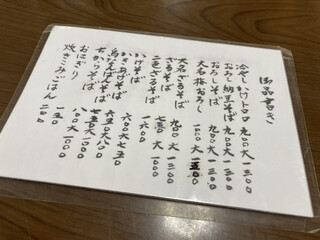 御品書き
冷やしかけトロロ 九〇〇 大一三〇〇
おろし納豆そば 九〇〇 大一三〇〇
おろしそば 九〇〇 大一三〇〇
大名梅おろし 一〇〇〇 大一五〇〇
大みざるそば 九〇〇 大一三〇〇
ざるそば 七五〇 大一〇〇〇
二色ざるそば 一六〇〇
かけそば 六〇〇 大七五〇
かきあげそば 六五〇 大八〇〇
鳥なんばんそば 七五〇 大一〇〇〇
カツそば 八〇〇 大一〇〇〇
おにぎり 一五〇
炊きこみごはん 二〇〇